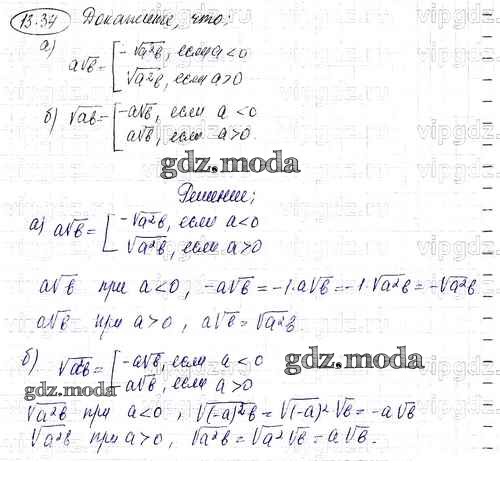 13.34 Докажите, что:
а) a√b = [ -√a²b, если a<0
√a²b, если a>0
б) √ab = [ -a√b, если a<0
a√b, если a>0.
gdz.moda
Решение;
а) a√b = [ -√a²b, если a<0
√a²b, если a>0
a√b при a<0, -a√b = -1·a√b = -1·√a²b = -√a²b
a√b при a>0, a√b = √a²b.
б) √ab = [ -a√b, если a<0
a√b, если a>0
gdz.moda
gdz.moda
√a²b при a<0, √(-a)²b = √(-a)²·√b = -a√b
√a²b при a>0, √a²b = √a²√b = a√b.